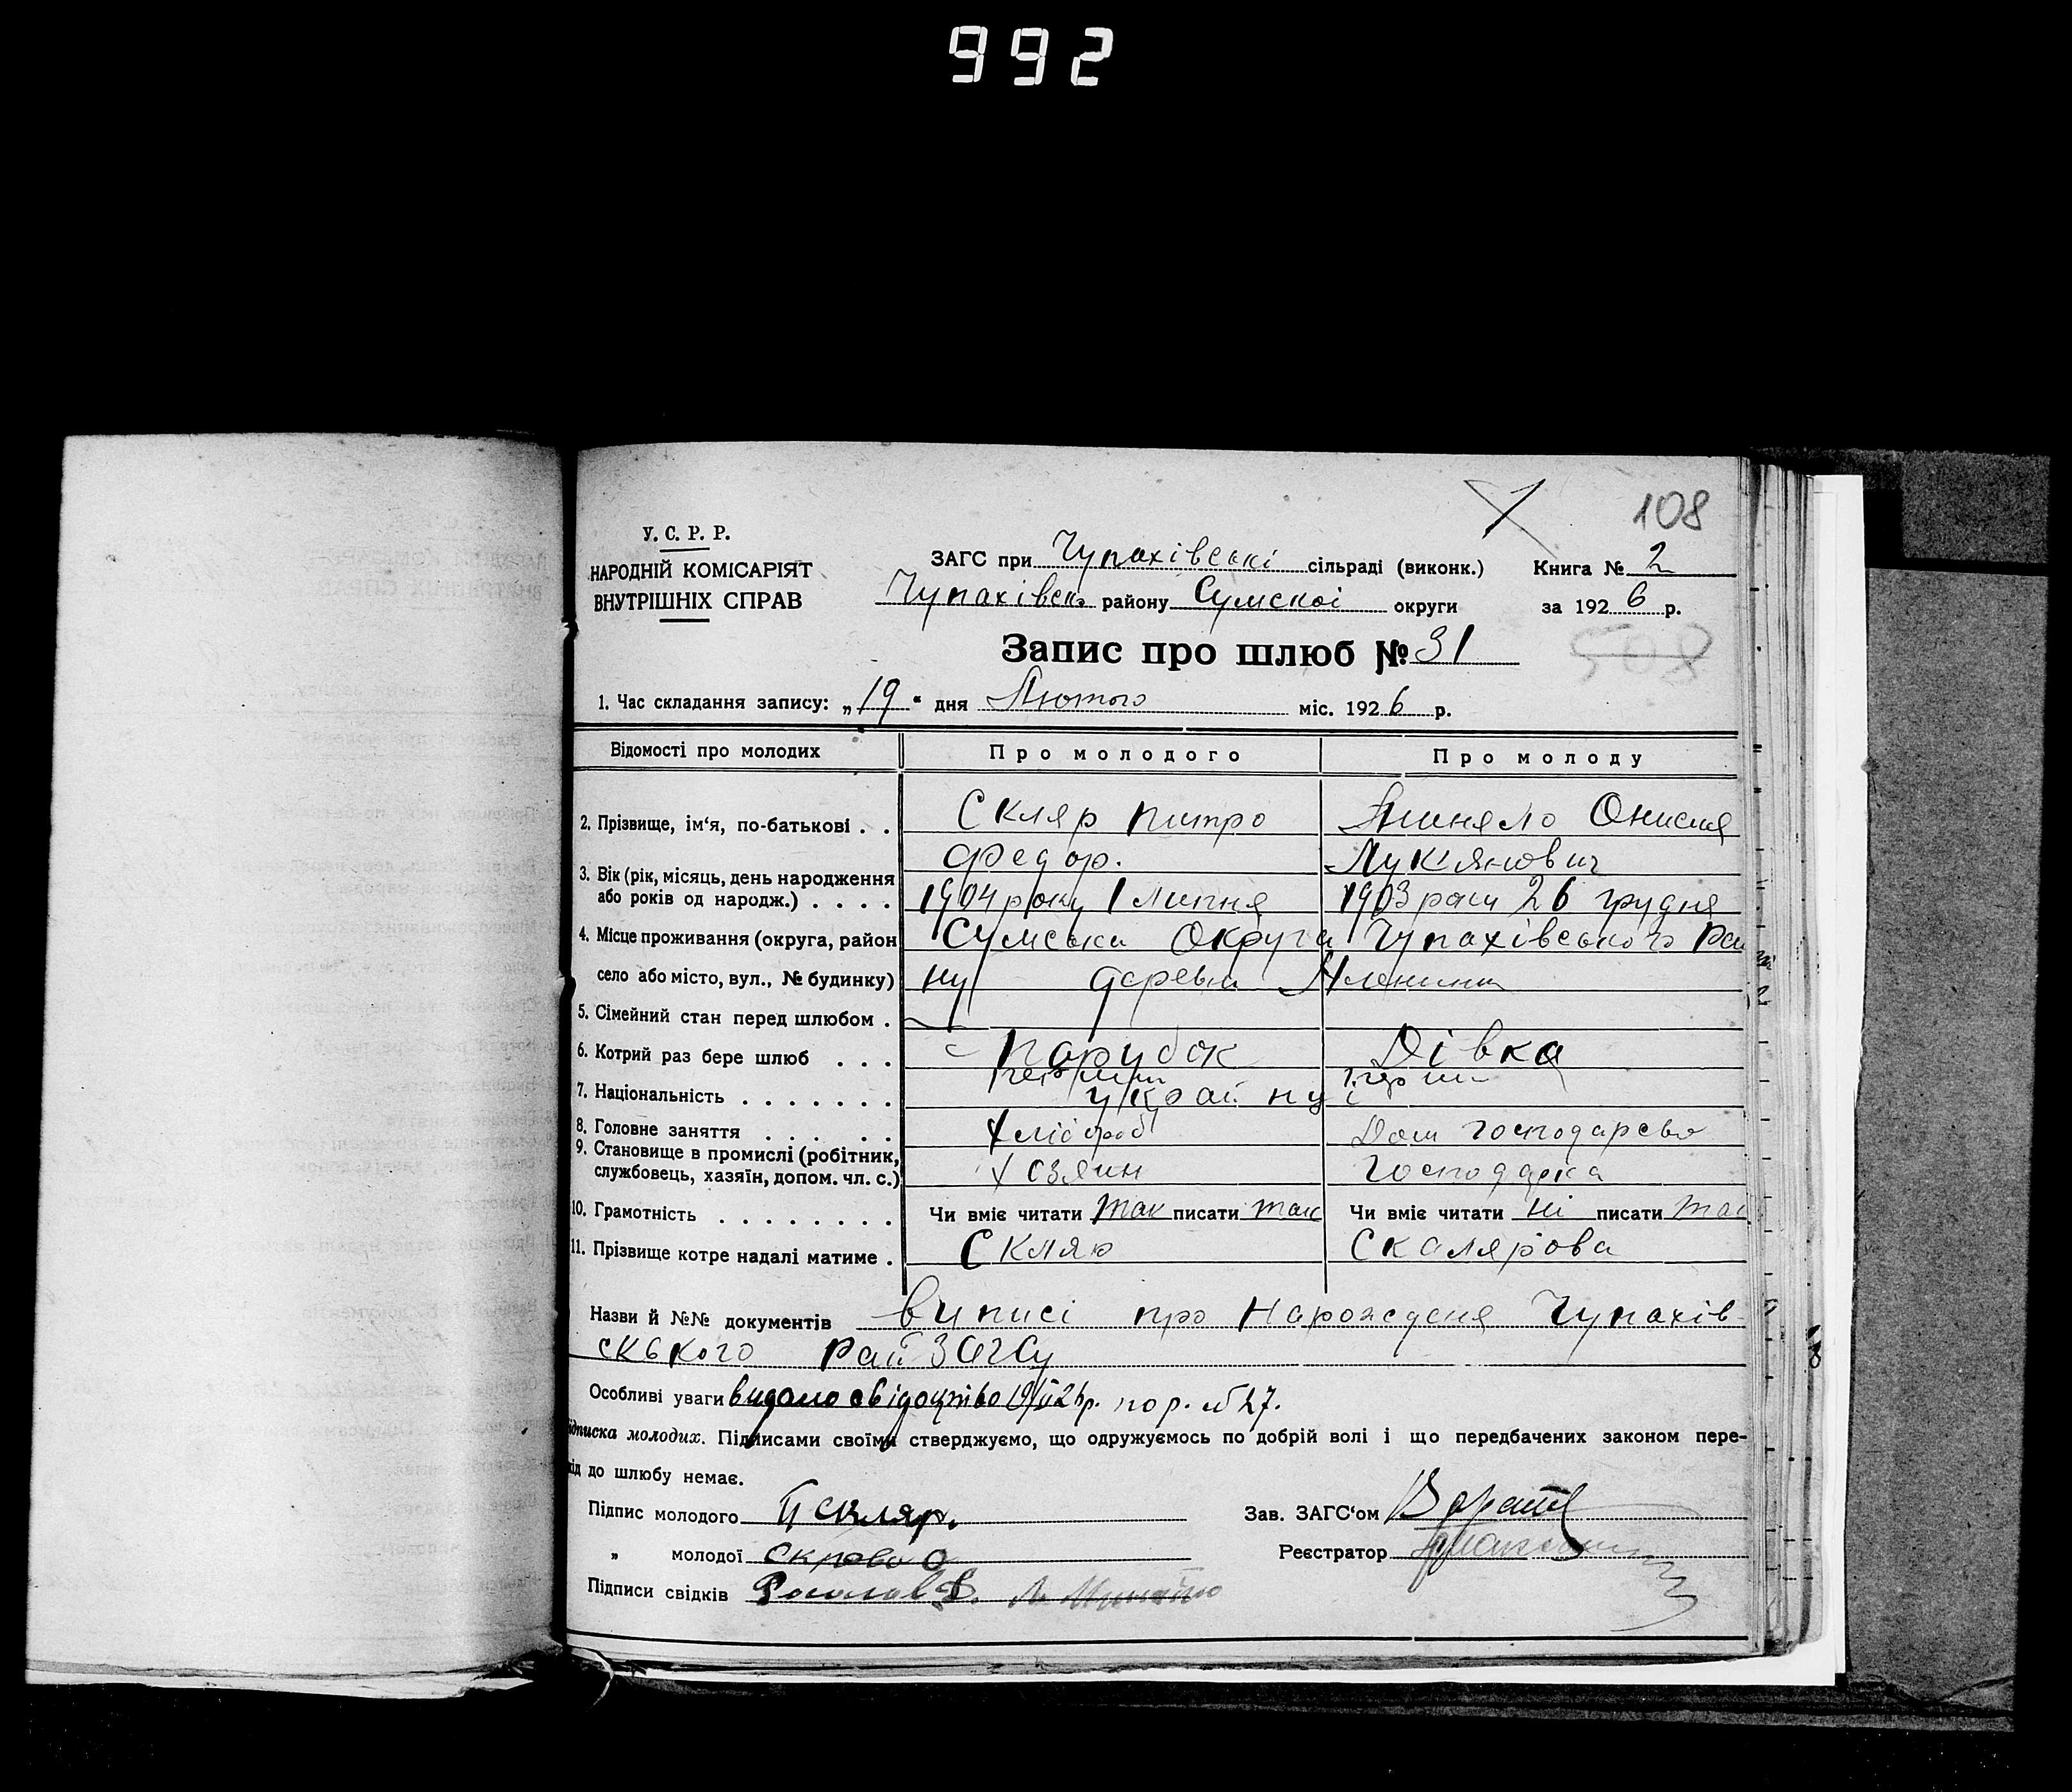 992
108
У. С. Р. Р.
НАРОДНІЙ КОМІСАРІЯТ
ВНУТРІШНІХ СПРАВ
ЗАГС при Чупахівські сільраді (виконк.) Книга № 2
Чупахівськ. району Сумскої округи за 1926 р.
Запис про шлюб № 31
508
1. Час складання запису: „19“ дня Лютого міс. 1926 р.
Відомості про молодих Про молодого Про молоду
2. Прізвище, ім‘я, по-батькові . . Скляр Питро Онисия
Федор. Лукянович
3. Вік (рік, місяць, день народження
або років од народж.) . . . . 1904 року 1 Липня 1903 роки 26 грудня
4. Місце проживання (округа, район Сумськи Округа Чупахівського Раи
село або місто, вул., № будинку) ну деревн
5. Сімейний стан перед шлюбом .
6. Котрий раз бере шлюб . . . Парубок Дівка
7. Національність . . . . . . . україnці
8. Головне заняття . . . . . Хлібороб Дом господарсво
9. Становище в промислі (робітник,
службовець, хазяїн, допом. чл. с.) Хозяин Господарка
10. Грамотність . . . . . . . . Чи вміє читати так писати так Чи вміє читати ні писати так
11. Прізвище котре надалі матиме . Скляр Скалярова
Назви й №№ документів виписі про Нарождения Чупахів-
ського РайЗАГСу
Особливі уваги видано свідоцтво 19/II 26 р. по р. № 27.
ідписка молодих. Підписами своїми стверджуємо, що одружуємось по добрій волі і що передбачених законом пере-
кід до шлюбу немає.
Підпис молодого П Скляр. Зав. ЗАГС‘ом
„ молодої О Реєстратор
Підписи свідків